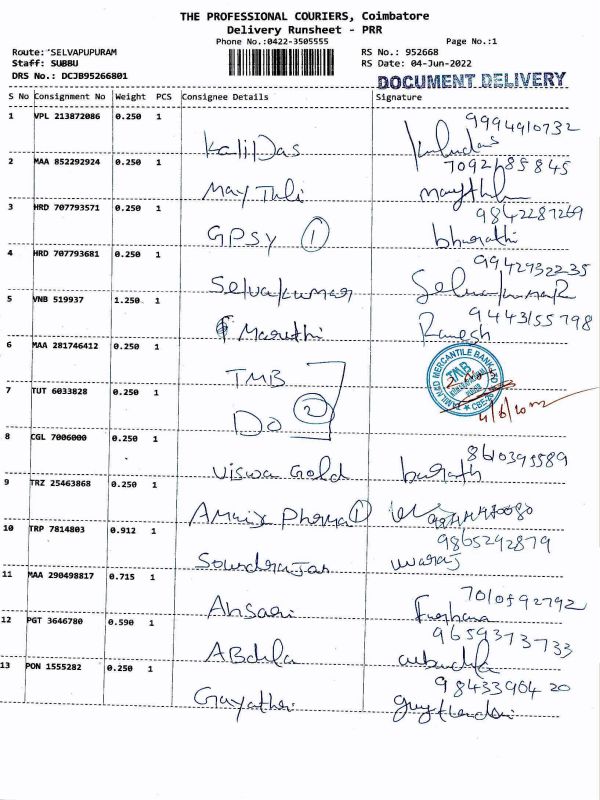 THE PROFESSIONAL COURIERS, Coimbatore
Delivery Runsheet - PRR
Phone No.:0422-3505555
Page No.:1
Route: SELVAPUPURAM
RS No.: 952668
Staff: SUBBU
RS Date: 04-Jun-2022
DRS No.: DCJB95266801
DOCUMENT DELIVERY
S No Consignment No Weight PCS Consignee Details Signature
1 VPL 213872086 0.250 1
9994910732
KaliDas
2 MAA 852292924 0.250 1
7092685845
MayThli
3 HRD 707793571 0.250 1
9842287269
GPSY 1 bharathi
4 HRD 707793681 0.250 1
9942932235
Selvakumar SelvakumaR
5 VNB 519937 1.250 1
9443155798
Maruthi Ramesh
6 MAA 281746412 0.250 1
TMB
TAMILNAD MERCANTILE BANK LTD
TMB
7 TUT 6033828 0.250 1
Do 2
4/6/2022
8 CGL 7006000 0.250 1
8610395589
Viswa Gold barath
9 TRZ 25463868 0.250 1
Amrix Pharma 1
10 TRP 7814803 0.912 1
9865292879
Soundrajan uvaraj
11 MAA 290498817 0.715 1
7010592792
Ahsari Farhana
12 PGT 3646780 0.590 1
9659373733
ABdula
13 PON 1555282 0.250 1
9843390420
Gayathri